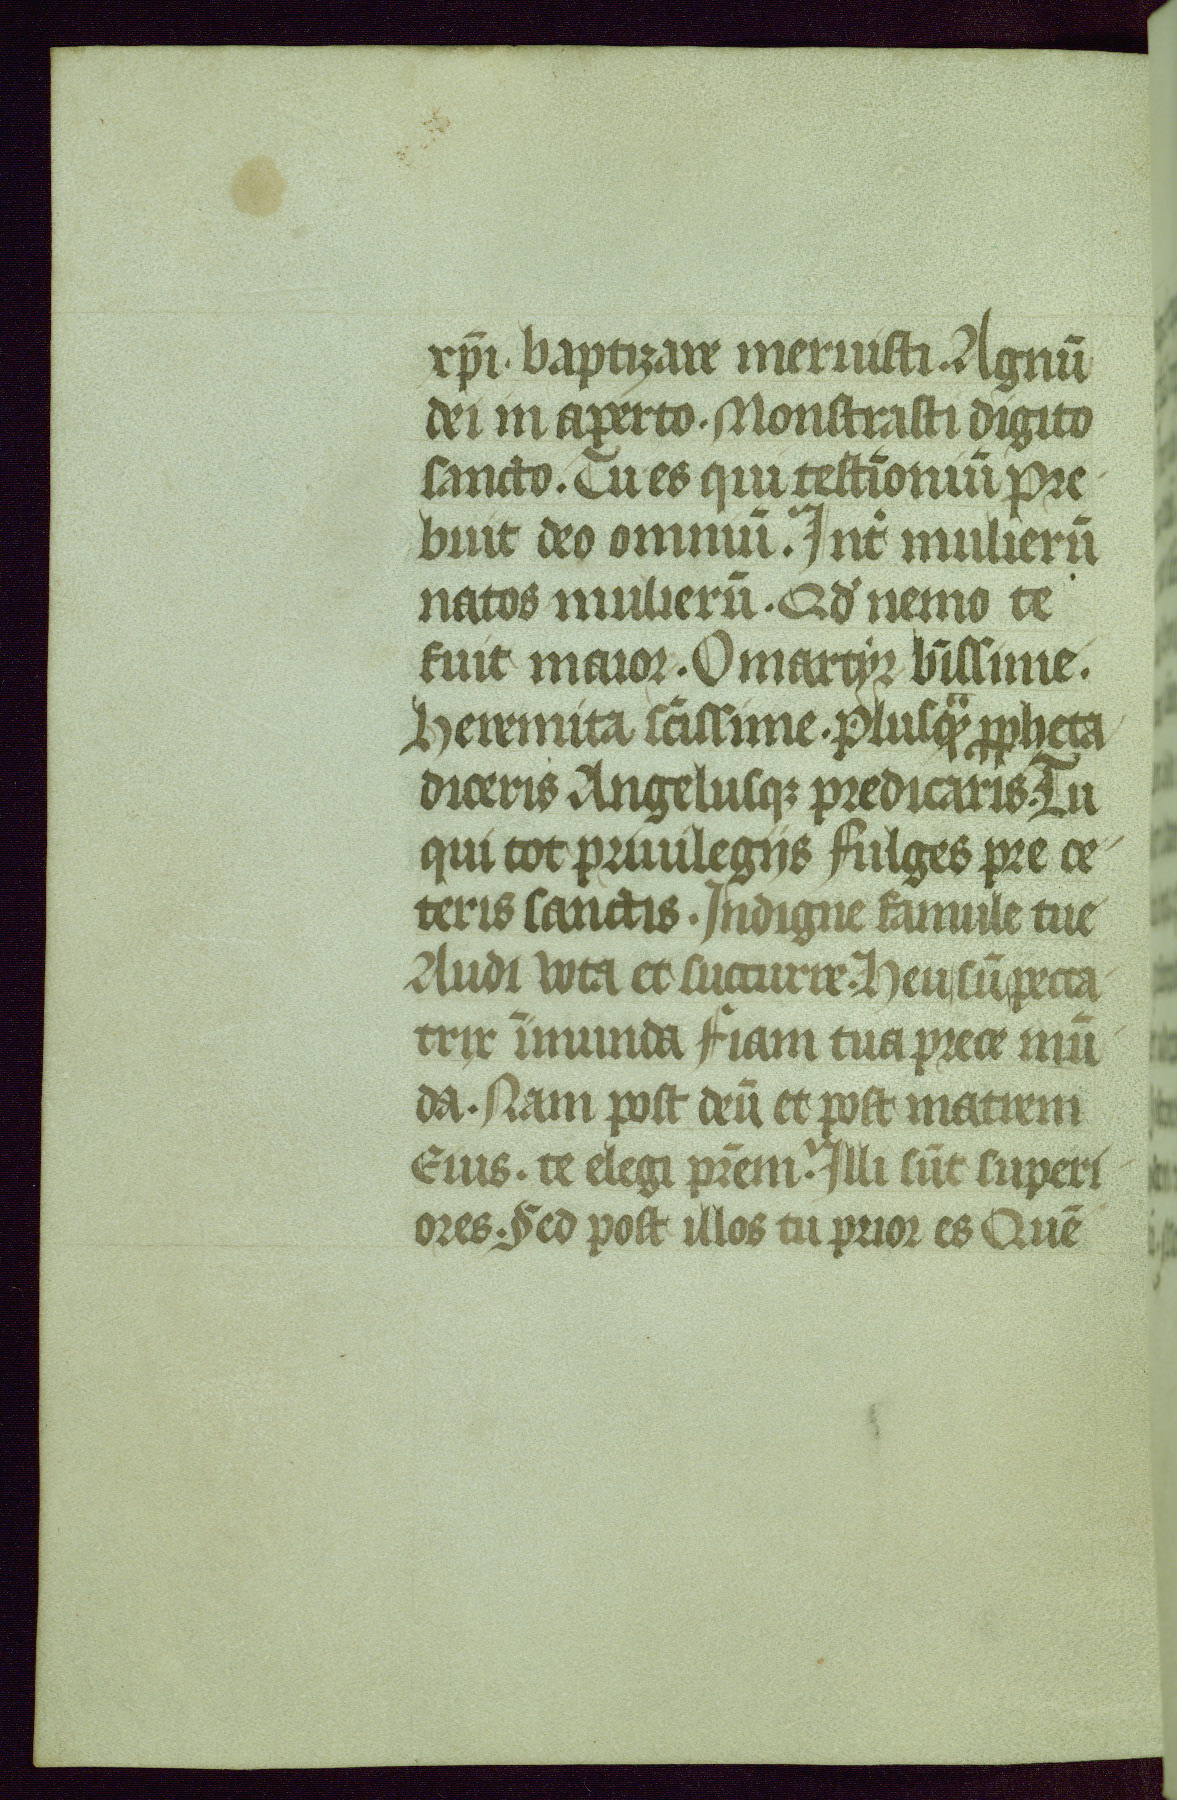 xp̄i. baptizare meruisti. Agnū
dei in aperto. Monstrasti digito
sancto. Tu es qui testīoniū pre
buit deo omniū. Int̉ mulierū
natos mulierū. Qd̉ nemo te
fuit maior. O martyr bīssime.
Heremita sc̄issime. Plusqͣ ꝓpheta
diceris Angelusqꝫ predicaris. Tu
qui tot priuilegijs fulges pre ce
teris sanctis. Indigne famule tue
Audi vota et succurre. Heu sū pecca
trix īmunda fiam tua prece mū
da. Nam post deū et post matrem
Eius. te elegi prēm. Illi sūt superi
ores. Sed post illos tu prior es Quē